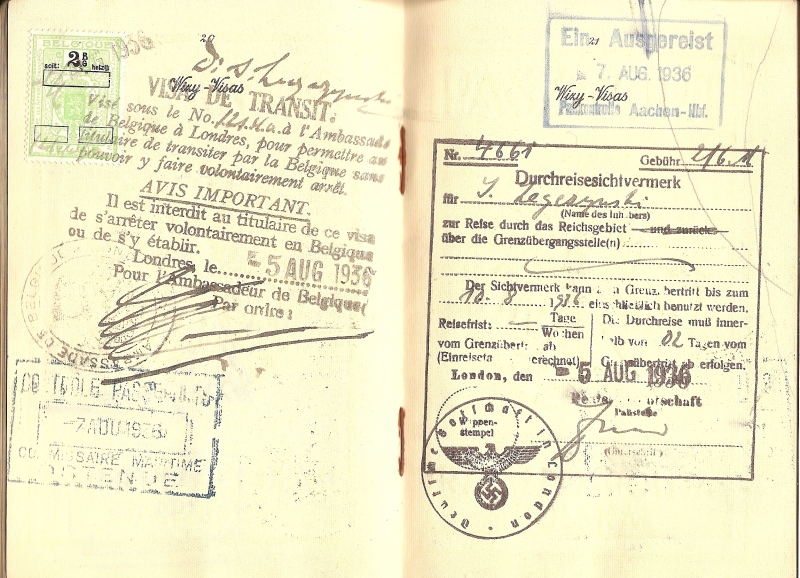 20
BELGIQUE
soit: 2 B6 belga
1936
Wizy-Visas
VISA DE TRANSIT.
Visé sous le No. à l'Ambassade
de Belgique à Londres, pour permettre au
titulaire de transiter par la Belgique sans
pouvoir y faire volontairement arrêt.
AVIS IMPORTANT.
Il est interdit au titulaire de ce visa
de s'arrêter volontairement en Belgique
ou de s'y établir.
Londres, le 5 AUG 1936
Pour l'Ambassadeur de Belgique
Par ordre:
AMBASSADE DE BELGIQUE
CONTROLE PASSEPORTS
-7 AOU 1936
COMMISSAIRE MARITIME
OSTENDE
21
Ein Ausgereist
7. AUG. 1936
Wizy-Visas
Paßkontrolle Aachen-Hbf.
Nr. 4661 Gebühr
Durchreisesichtvermerk
für
(Name des Inhabers)
zur Reise durch das Reichsgebiet und zurück
über die Grenzübergangsstelle(n)
Der Sichtvermerk kann zum Grenzübertritt bis zum
10.8 1936 einschließlich benutzt werden.
Reisefrist: Tage
Wochen
vom Grenzübertritt ab
(Einreisetag gerechnet)
Die Durchreise muß inner-
halb von 02 Tagen vom
Grenzübertritt ab erfolgen.
London, den 5 AUG 1936
Deutsche Botschaft
Paßstelle
Wappen-
stempel
(Unterschrift)
Deutsche Botschaft in London